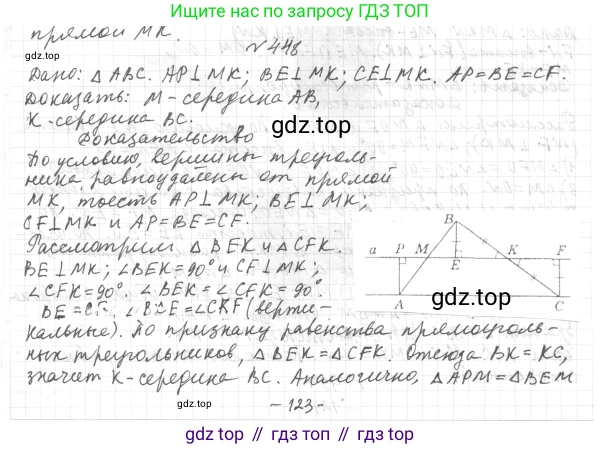 Ищите нас по запросу ГДЗ ТОП
прямой МК.
gdz.top
№ 448
Дано: △ABC. AP⊥MK; BE⊥MK; CE⊥MK. AP=BE=CF.
Доказать: M - середина AB,
K - середина BC.
Доказательство
gdz.top
По условию, вершины треуголь-
ника равноудалены от прямой
MK, тоесть AP⊥MK; BE⊥MK;
CF⊥MK и AP=BE=CF.
Рассмотрим △BEK и △CFK.
BE⊥MK; ∠BEK=90° и CF⊥MK;
∠CFK=90°. ∠BEK=∠CFK=90°.
BE=CF, =∠CKF (верти-
кальные). По признаку равенства прямоуголь-
ных треугольников, △BEK=△CFK. Отсюда BK=KC,
значит K - середина BC. Аналогично, △APM=△BEM
a P M B E K F A C
gdz.top
gdz.top
- 123 -
gdz.top
gdz.top // гдз.топ // gdz.top